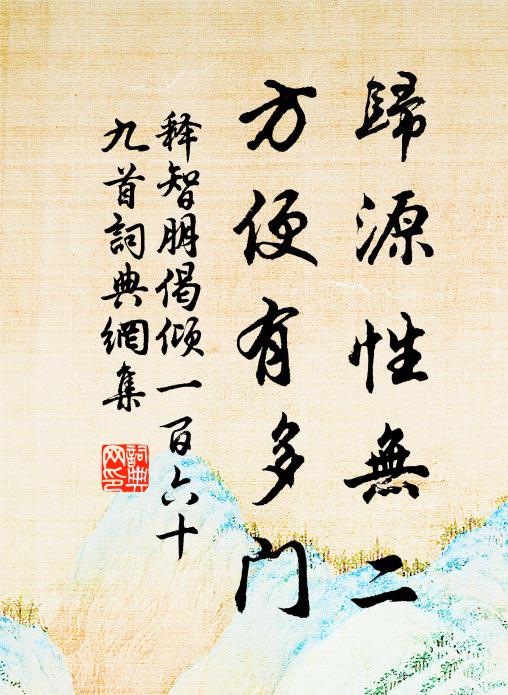 歸源性無二
方便有多門
释智朋偈倾一百六十
九首詞典網集
詞典
网印